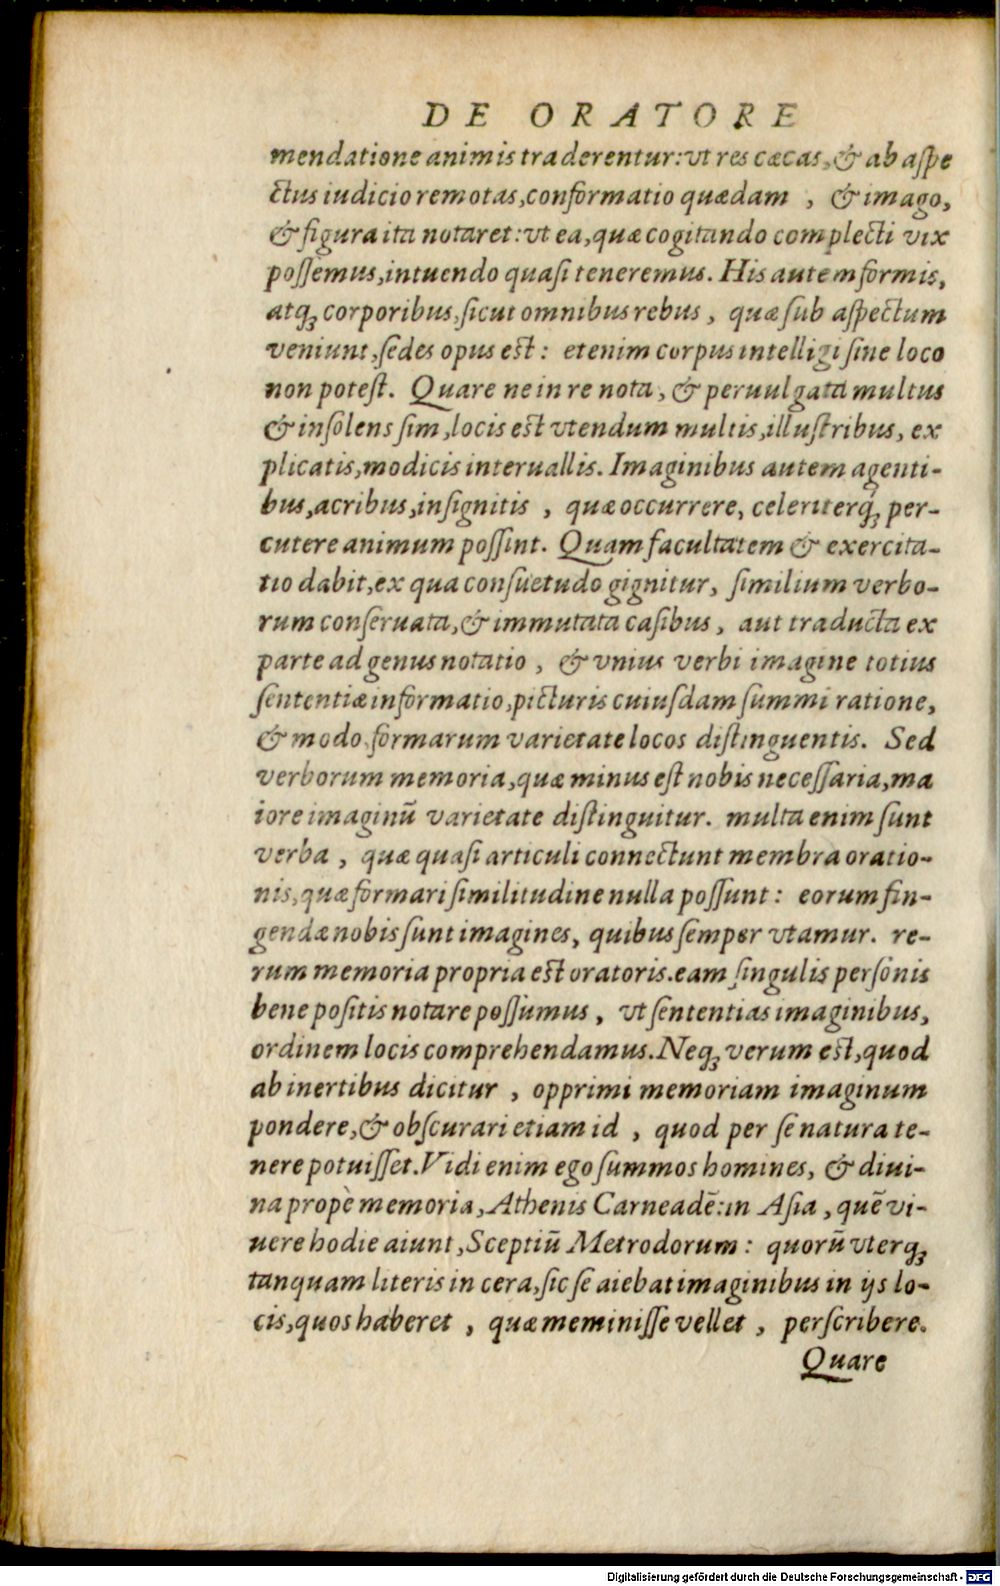 DE ORATORE
mendatione animis traderentur: vt res cæcas, & ab aſpe
ctus iudicio remotas, conformatio quædam , & imago,
& figura ita notaret: vt ea, quæ cogitando complecti vix
poſſemus, intuendo quaſi teneremus. His autem formis,
atq; corporibus, ſicut omnibus rebus , quæ ſub aſpectum
veniunt, ſedes opus eſt: etenim corpus intelligi ſine loco
non poteſt. Quare ne in re nota, & peruulgata multus
& inſolens ſim, locis eſt vtendum multis, illuſtribus, ex
plicatis, modicis interuallis. Imaginibus autem agenti-
bus, acribus, inſignitis , quæ occurrere, celeriterq́; per-
cutere animum poſſint. Quam facultatem & exercita-
tio dabit, ex qua conſuetudo gignitur, ſimilium verbo-
rum conſeruata, & immutata caſibus, aut traducta ex
parte ad genus notatio , & vnius verbi imagine totius
ſententiæ informatio, picturis cuiuſdam ſummi ratione,
& modo, formarum varietate locos diſtinguentis. Sed
verborum memoria, quæ minus eſt nobis neceſſaria, ma
iore imaginū varietate diſtinguitur. multa enim ſunt
verba , quæ quaſi articuli connectunt membra oratio-
nis, quæ formari ſimilitudine nulla poſſunt: eorum fin-
gendæ nobis ſunt imagines, quibus ſemper vtamur. re-
rum memoria propria eſt oratoris. eam ſingulis perſonis
bene poſitis notare poſſumus, vt ſententias imaginibus,
ordinem locis comprehendamus. Neq; verum eſt, quod
ab inertibus dicitur , opprimi memoriam imaginum
pondere, & obſcurari etiam id , quod per ſe natura te-
nere potuiſſet. Vidi enim ego ſummos homines, & diui-
na propè memoria, Athenis Carneadē: in Aſia , quē vi-
uere hodie aiunt, Sceptiū Metrodorum: quorū vterq;
tanquam literis in cera, ſic ſe aiebat imaginibus in ijs lo-
cis, quos haberet , quæ meminiſſe vellet , perſcribere.
Quare
Digitalisierung gefördert durch die Deutsche Forschungsgemeinschaft - DFG